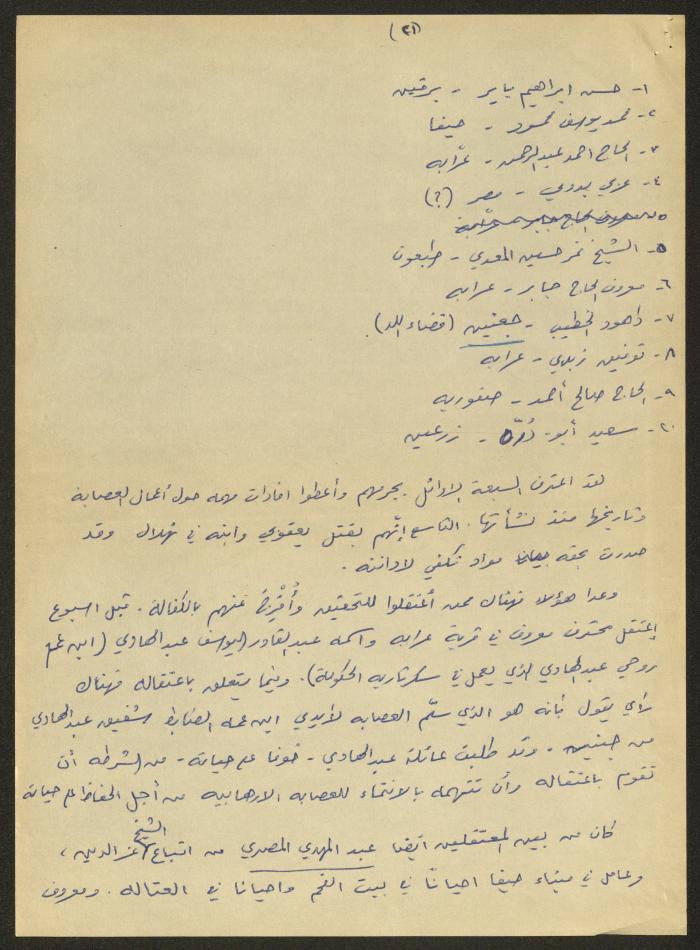 (٢١)
١- حسن ابراهيم باير - برقين
٢- محمد يوسف محمود - حيفا
٣- الحاج احمد عبد الرحمن - عرّابه
٤- عزي بدوي - مصر (؟)
٥- الشيخ نمر حسين المعدي - طبعون
٦- معروف الحاج جابر - عرابه
٧- داهود الخطيب - جعتين (قضاء اللد).
٨- توفيق زبدي - عرابه
٩- الحاج صالح أحمد - صفوريه
١٠- سعيد أبو درّه - زرعين
لقد اعترف السبعة الاوائل بجرمهم وأعطوا افادات مهمه حول أعمال العصابة
وتاريخها منذ نشأتها. التاسع إتّهم بقتل يعقوبي وابنه في نهلال وقد
صدرت بحقه مواد تكفي لادانته.
وعدا هؤلاء فهناك ممن أُعتقلوا للتحقيق وأُفْرِجَ عنهم بالكفالة. قبل اسبوع
إعتقل محترف معروف في قرية عرابه واسمه عبد القادر اليوسف عبد الهادي (ابن عم
روحي عبد الهادي الذي يعمل في سكرتاريه الحكومة). وفيما يتعلق باعتقاله فهناك
رأي يقول بأنه هو الذي سلّم العصابه لأيدي ابن عمه الضابط شفيق عبد الهادي
من جنين. وقد طلبت عائلة عبد الهادي - خوفا على حياته - من الشرطه أن
تقوم باعتقاله وأن تتهمه بالانتماء للعصابه الارهابيه من أجل الحفاظ على حياته
كان من بين المعتقلين أيضا عبد المهدي المصري من اتباع الشيخ عز الدين،
وعامل في ميناء حيفا احيانًا في بيت الفحم واحيانا في العتاله. ومعروف